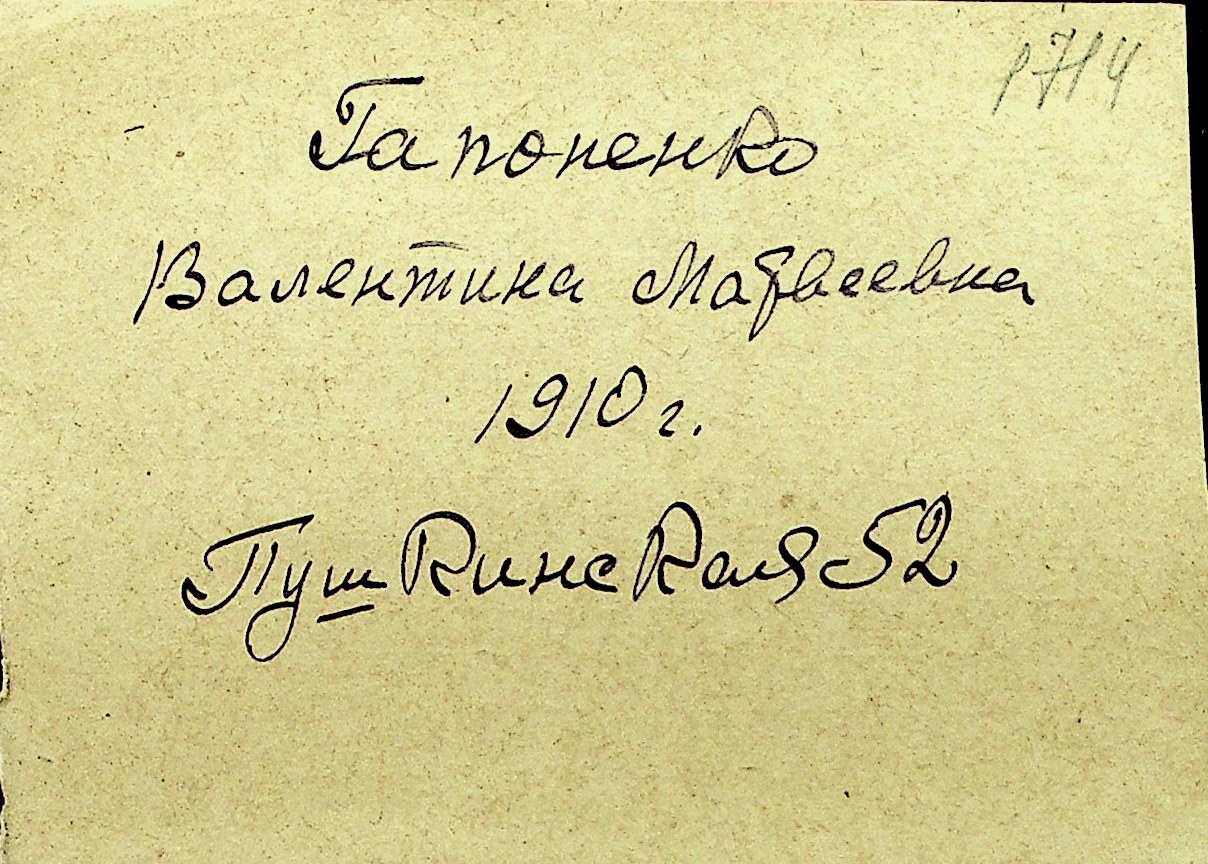 1714
Гапоненко
Валентина Матвеевна
1910 г.
Пушкинская 52